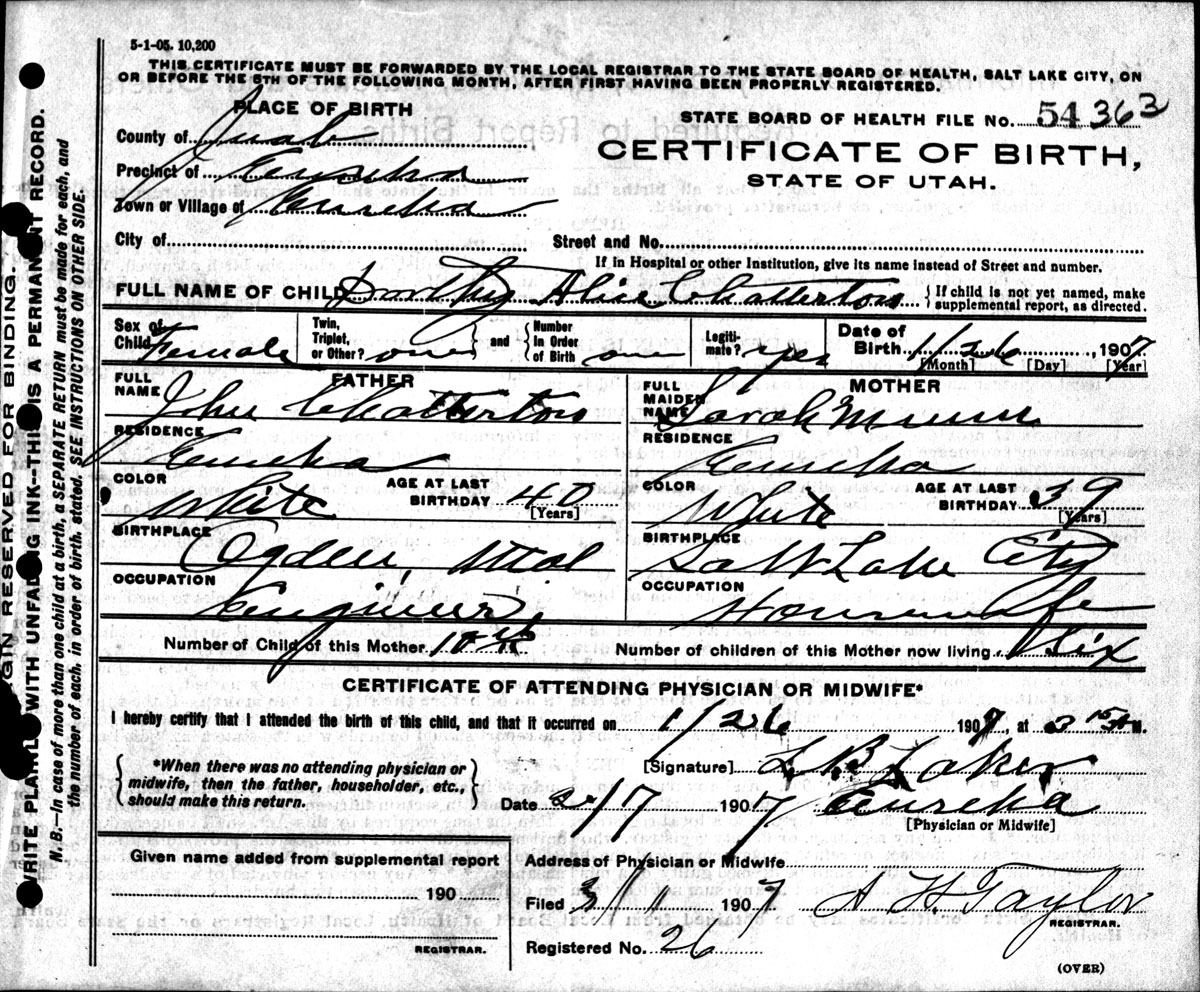 5-1-05. 10,200
THIS CERTIFICATE MUST BE FORWARDED BY THE LOCAL REGISTRAR TO THE STATE BOARD OF HEALTH, SALT LAKE CITY, ON
OR BEFORE THE 5TH OF THE FOLLOWING MONTH, AFTER FIRST HAVING BEEN PROPERLY REGISTERED.
PLACE OF BIRTH
STATE BOARD OF HEALTH FILE NO. 54 363
County of Juab
CERTIFICATE OF BIRTH,
Precinct of Eureka
STATE OF UTAH.
Town or Village of Eureka
City of
Street and No.
If in Hospital or other Institution, give its name instead of Street and number.
FULL NAME OF CHILD Dorothy Alice Chatterton { If child is not yet named, make supplemental report, as directed.
Sex of Child Female
Twin, Triplet, or Other? one } and { Number in Order of Birth one
Legitimate? yes
Date of Birth 1/26, 1907
[Month] [Day] [Year]
FATHER
FULL NAME John Chatterton
RESIDENCE
Eureka
COLOR White
AGE AT LAST BIRTHDAY 40
[Years]
BIRTHPLACE
Ogden, Utah
OCCUPATION
Engineer
MOTHER
FULL MAIDEN NAME Sarah
RESIDENCE
Eureka
COLOR White
AGE AT LAST BIRTHDAY 39
[Years]
BIRTHPLACE
Salt Lake City
OCCUPATION
Housewife
Number of Child of this Mother 10th
Number of children of this Mother now living Six
CERTIFICATE OF ATTENDING PHYSICIAN OR MIDWIFE*
I hereby certify that I attended the birth of this child, and that it occurred on 1/26 1907, at 3 15 A M.
{ *When there was no attending physician or midwife, then the father, householder, etc., should make this return. }
[Signature] L. B. Laker
Date 2/17 1907 Eureka
[Physician or Midwife]
Given name added from supplemental report
190
REGISTRAR.
Address of Physician or Midwife
Filed 3/1 1907 A H Taylor
REGISTRAR.
Registered No. 26
(OVER)
GIN RESERVED FOR BINDING.
WRITE PLAINLY WITH UNFADING INK--THIS IS A PERMANENT RECORD.
N. B.--In case of more than one child at a birth, a SEPARATE RETURN must be made for each, and
the number of each, in order of birth, stated. SEE INSTRUCTIONS ON OTHER SIDE.